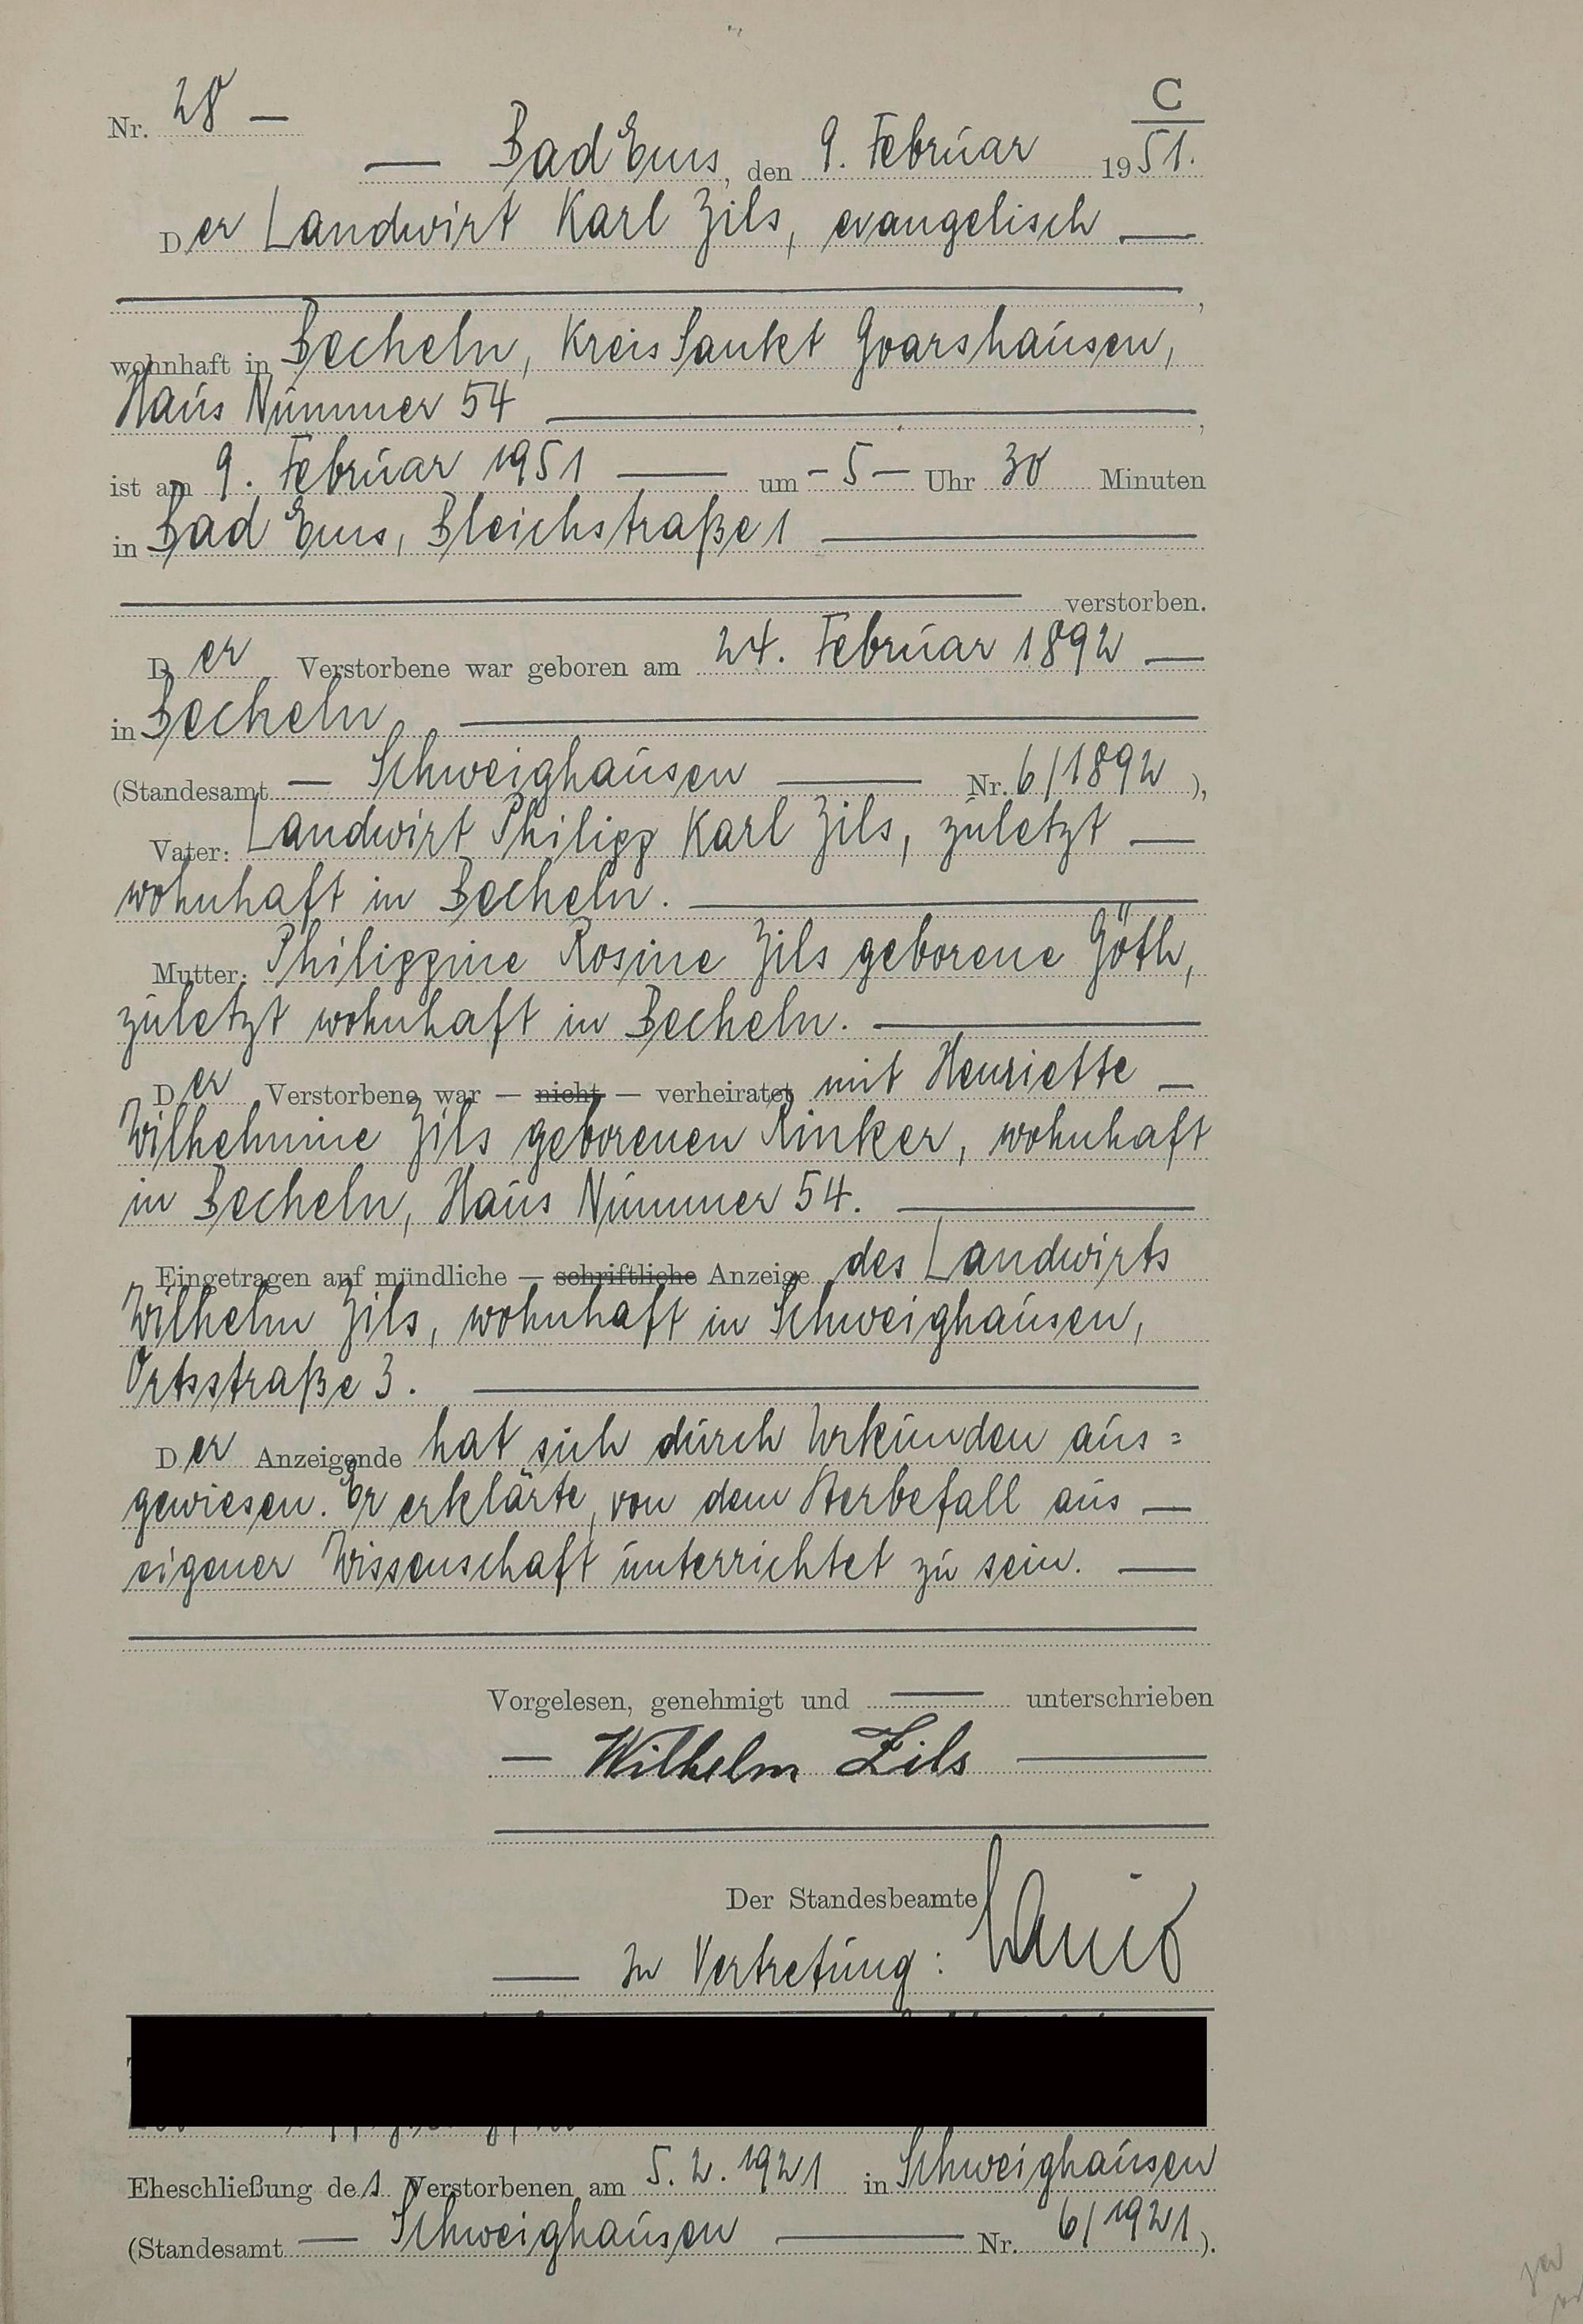 C
Nr. 28 —
— Bad Ems, den 9. Februar 1951.
Der Landwirt Karl Zils, evangelisch —
wohnhaft in Becheln, Kreis Sankt Goarshausen,
Haus Nummer 54
ist am 9. Februar 1951 — um - 5 - Uhr 30 Minuten
in Bad Ems, Bleichstraße 1
verstorben.
Der Verstorbene war geboren am 24. Februar 1892 —
in Becheln
(Standesamt — Schweighausen — Nr. 6/1892),
Vater: Landwirt Philipp Karl Zils, zuletzt —
wohnhaft in Becheln. —
Mutter: Philippine Rosine Zils geborene Göth,
zuletzt wohnhaft in Becheln. —
Der Verstorbene war — nicht — verheiratet mit Henriette —
Wilhelmine Zils geborenen Rinker, wohnhaft
in Becheln, Haus Nummer 54. —
Eingetragen auf mündliche — schriftliche Anzeige des Landwirts
Wilhelm Zils, wohnhaft in Schweighausen,
Ortsstraße 3. —
Der Anzeigende hat sich durch Urkunden aus=
gewiesen. Er erklärte, von dem Sterbefall aus —
eigener Wissenschaft unterrichtet zu sein. —
Vorgelesen, genehmigt und — unterschrieben
— Wilhelm Zils —
Der Standesbeamte
— In Vertretung:
Eheschließung des Verstorbenen am 5.2.1921 in Schweighausen
(Standesamt — Schweighausen — Nr. 6/1921).